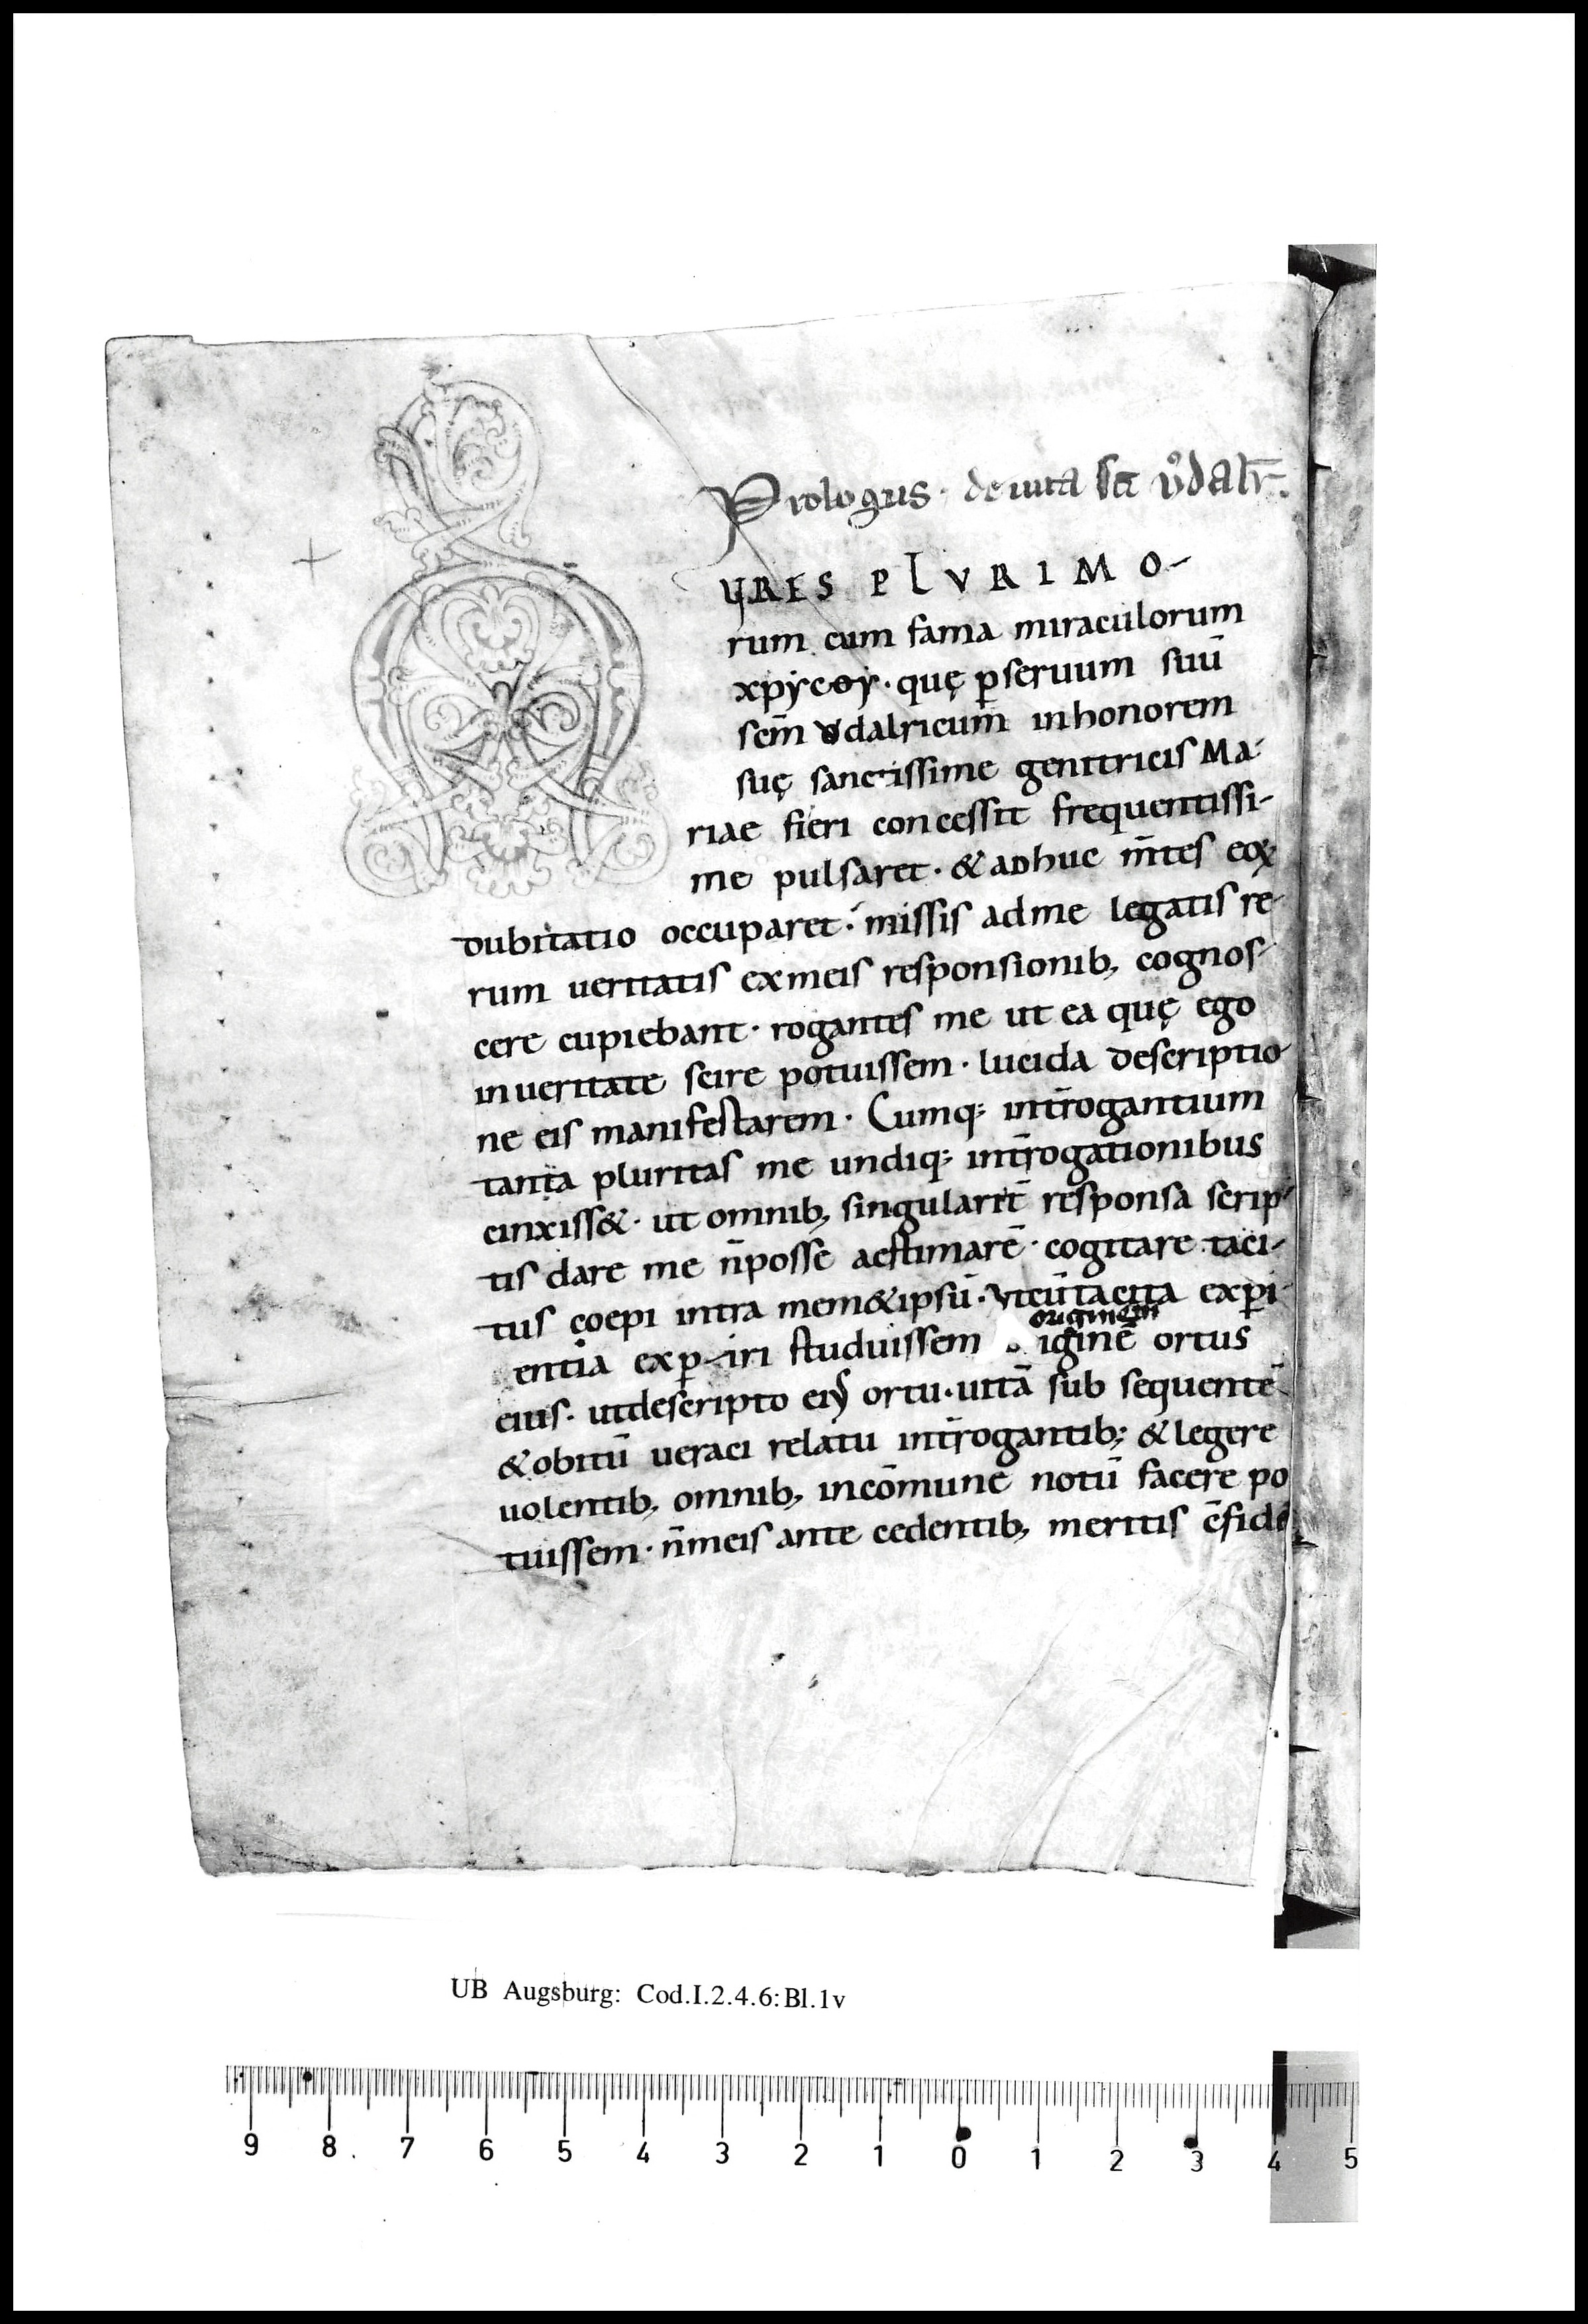 Prologus · de uita sc̄i vͦdalr̄.
AURES PLVRIMO-
rum cum fama miraculorum
xpyctoy · quę ꝑ seruum suū
sc̄m vdalricum in honorem
suę sanctissime genitricis Ma-
riae fieri concessit frequentissi-
me pulsaret · & adhuc m̄tes eoꝝ
dubitatio occuparet · missis ad me legatis re-
rum ueritatis ex meis responsionib, cognos-
cere cupiebant · rogantes me ut ea quę ego
in ueritate scire potuissem · lucida descriptio-
ne eis manifestarem · Cumq; int̄rogantium
tanta pluritas me undiq; int̄rogationibus
cinxiss& · ut omnib, singularit̄ responsa scrip-
tis dare me n̄ posse aestimarē · cogitare taci-
tus coepi intra mem&ipsū · vt cū tacita exꝑi-
originem
entia exꝑiri studuissem iginē ortus
eius · ut descripto eiꝰ ortu · uitā sub sequentē
& obitū ueraci relatu int̄rogantib; & legere
uolentib, omnib, in cōmune notū facere po
tuissem · n̄ meis ante cedentib, meritis c̄fidē
UB Augsburg: Cod.I.2.4.6:Bl.1v
9 8 7 6 5 4 3 2 1 0 1 2 3 4 5